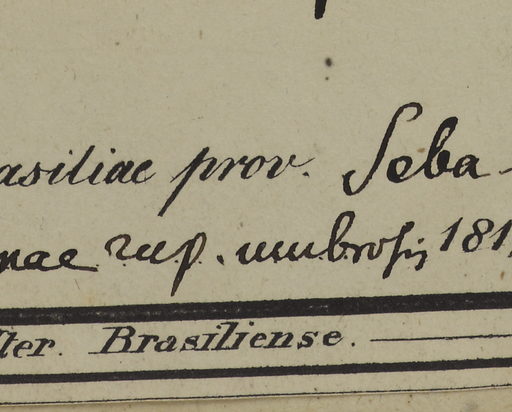 asiliae prov. Seba-
nae rup. umbrosis 181
ter. Brasiliense.